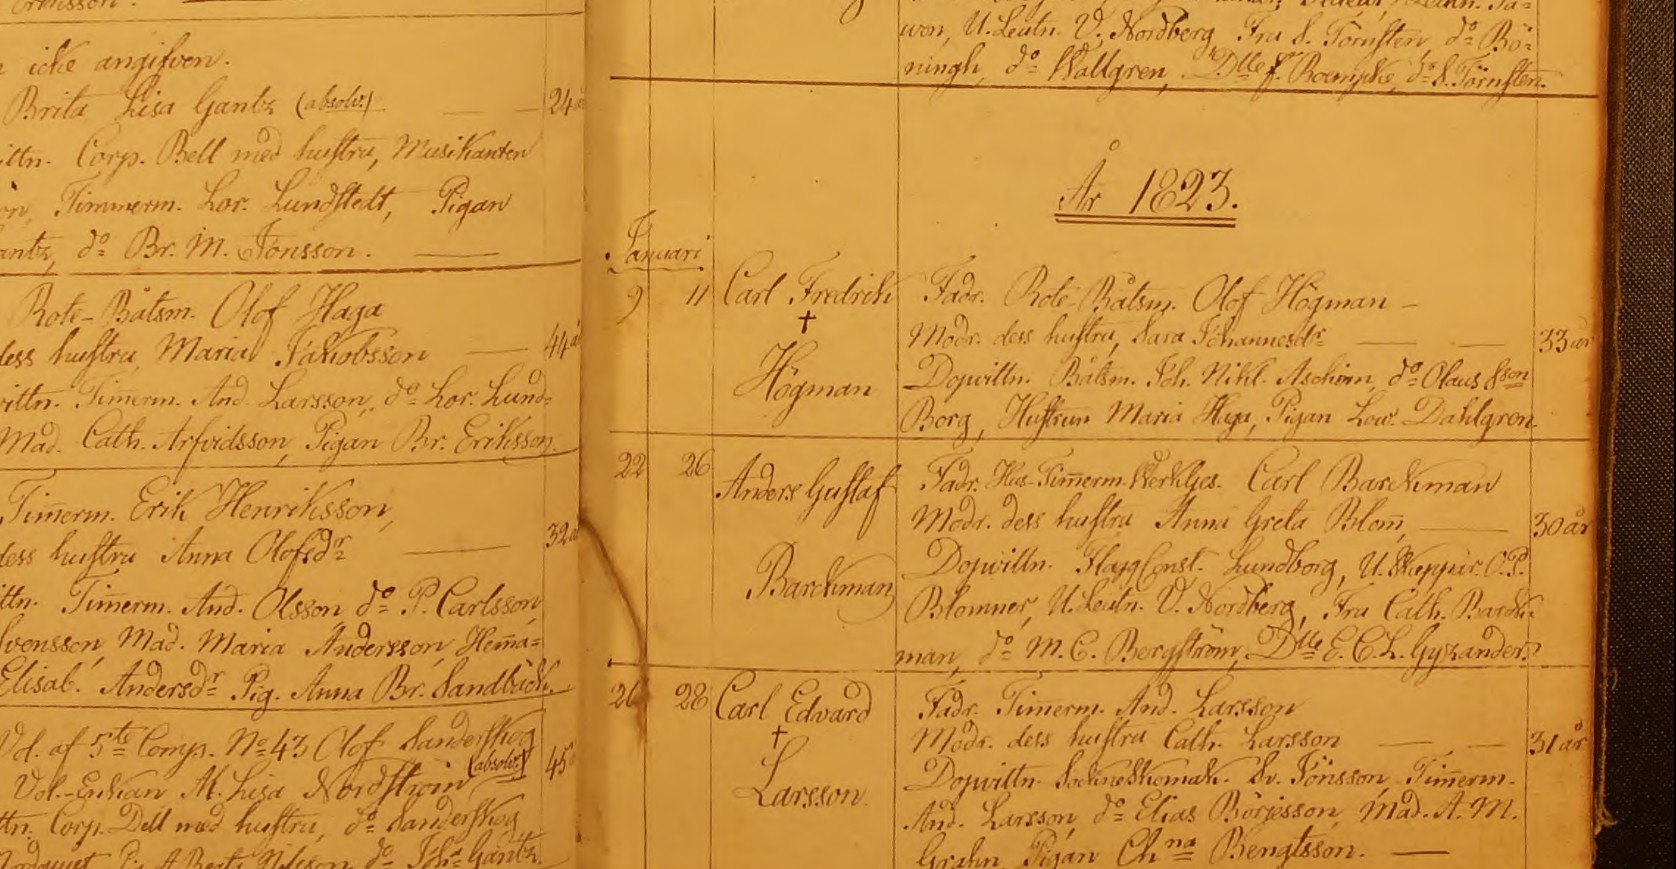 icke angifven.
Brita Lisa Gantz (absolv.) 24
Corp. Bell med hustru, Musikanten
Timmerm. Lor. Lundstedt, Pigan
do Br. M. Jonsson.
Rote-Båtsm. Olof Haga
dess hustru Maria Jakobsson 44
Timerm. And. Larsson, do Lor. Lund-
Mad. Cath. Arfvidsson, Pigan Br. Eriksson
Timerm. Erik Henriksson,
dess hustru Anna Olofsdr 32
Timerm. And. Olsson do P. Carlsson,
Svensson, Mad. Maria Andersson, Hema-
Elisab. Andersdr Pig. Anna Br. Sandbäck.
Vol. af 5te Comp. No 43 Olof Sanderskog
Vol.-Enkan M. Lisa Nordström (absolv.) 45
Corp. Dell med hustru, do Sanderskog
U. Leutn. V. Nordberg, Fru S. Törnsten, do Bö-
ningh, do Wallgren, Dlle J. Roempke, do S. Törnsten.
År 1823.
Januari
9 11 Carl Fredrik
†
Högman
Fadr. Rote-Båtsm. Olof Högman
Modr. dess hustru, Sara Johannesdr 33 år
Dopvittn. Båtsm. Joh. Nikl. Asohim, do Olaus Sson
Borg, Hustrun Maria Haga, Pigan Lov. Dahlgren.
22 26 Anders Gustaf
Barckman
Fadr. Hus-Timerm. Werkges. Carl Barckman
Modr. dess hustru Anna Greta Blom, 30 år
Dopvittn. FlaggConst. Lundborg, U. Skeppar. O. P.
Blomner, U. Leutn. V. Nordberg, Fru Cath. Barck-
man, do M. C. Bergström, Dlle E. C. L. Gyzander.
26 28 Carl Edvard
†
Larsson
Fadr. Timerm. And. Larsson
Modr. dess hustru Cath. Larsson 31 år
Dopvittn. Sockneskomak. Sv. Jönsson, Timerm.
And. Larsson, do Elias Börjesson, Mad. A. M.
Grahn, Pigan Chna Bengtsson.